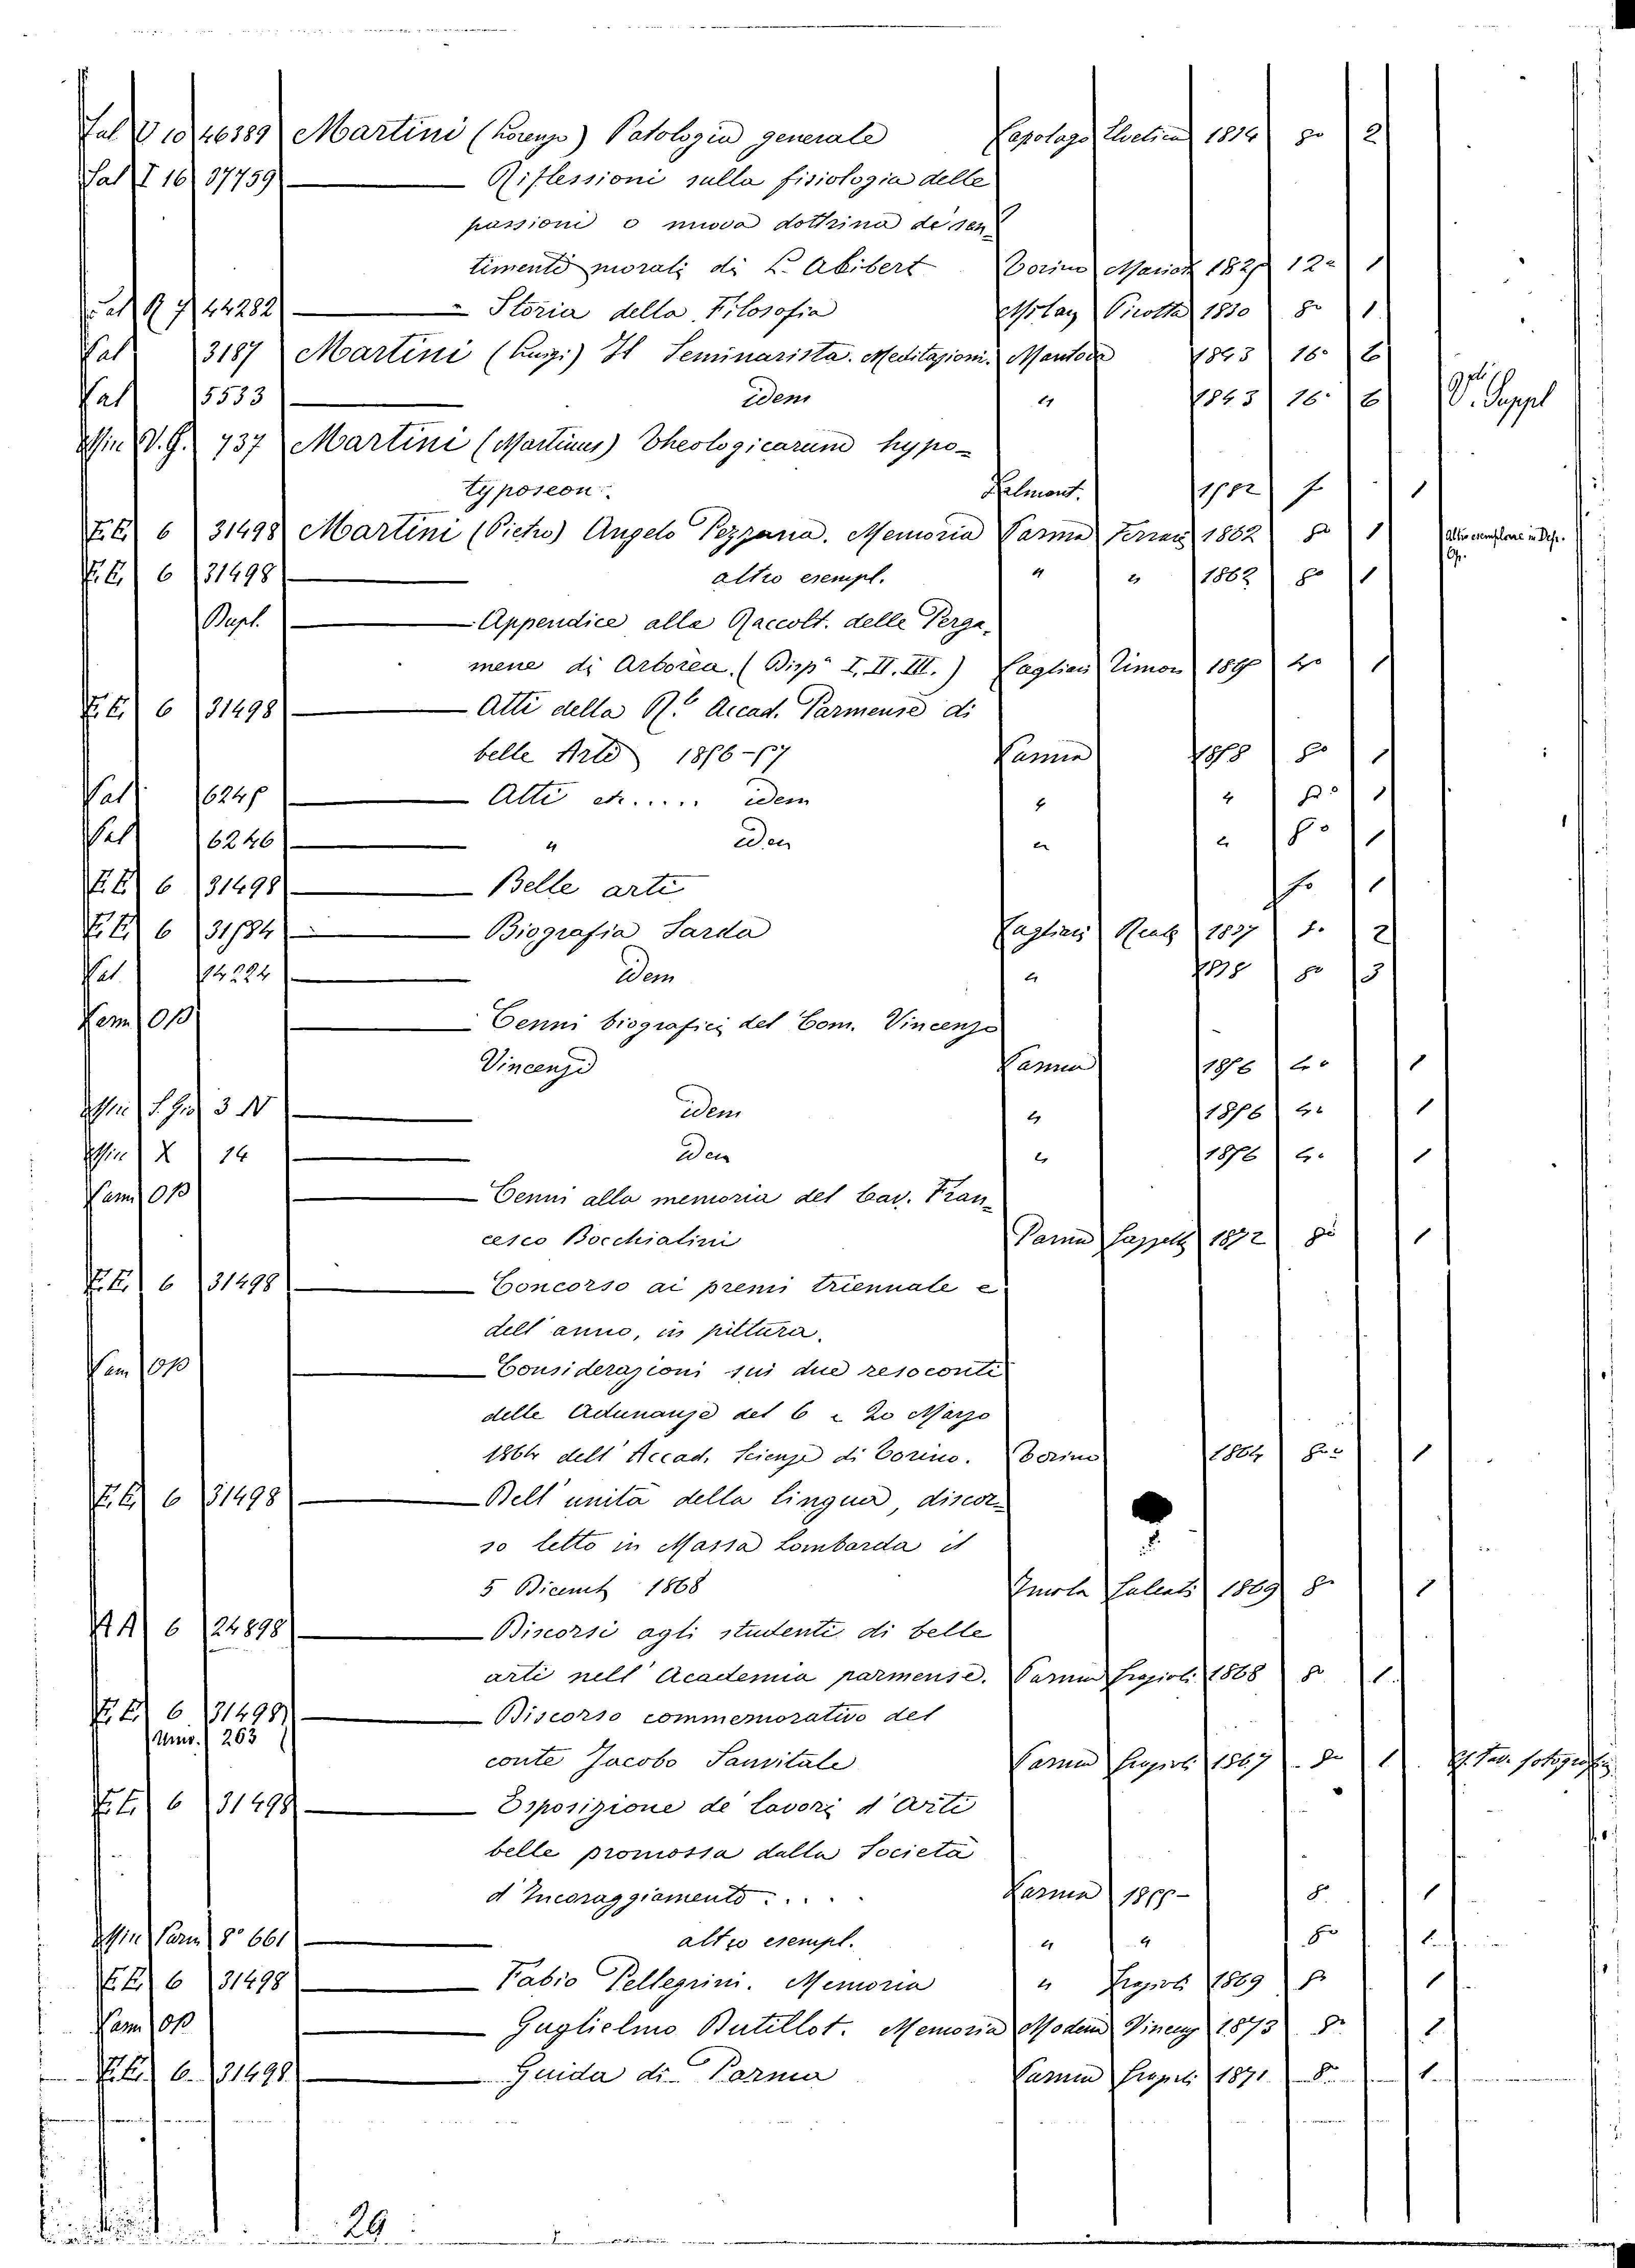 Sal V 10 46389 Martini (Lorenzo) Patologia generale Capolago Elvetica 1834 8o 2
Sal I 16 37759 Riflessioni sulla fisiologia delle
passioni o nuova dottrina de' sen-
timenti morali di L. Alibert Torino 1827 12o 1
Sal Q 7 44282 Storia della Filosofia Milan Pirotta 1830 8o 1
Pal 3187 Martini (Luigi) Il Seminarista. Meditazioni. Mantova 1843 16o 6
Pal 15533 idem " 1843 16o 6 V. Suppl
Min V. G. 737 Martini (Martinus) Theologicarum hypo-
typoseon Helmont. f 1
E. E. 6 31498 Martini (Pietro) Angelo Pezzana. Memoria Parma Ferrari 1862 8o 1 Altro esemplare in Dep.
E. E. 6 31498 altro esempl. " " 1862 8o 1
Dupl. Appendice alla Raccolt. delle Perga-
mene di Arborea. (Disp. I. II. III.) Cagliari Timon 4o 1
E. E. 6 31498 Atti della R. Accad. Parmense di
belle Arti 1856-57 Parma 1858 8o 1
Pal 6245 Atti etc..... idem " " 8o 1
Pal 6246 " idem " " 8o 1
E. E. 6 31498 Belle arti 8o 1
E. E. 6 31584 Biografia Sarda Cagliari Reale 1837 8o 2
Pal 14224 idem " 1838 8o 3
Parm Op Cenni biografici del Com. Vincenzo
Vincenzo Parma 1876 4o 1
Min 3 N idem " 1876 4o 1
Min X 14 idem " 1876 4o 1
Parm Op Cenni alla memoria del Cav. Fran-
cesco Bocchialini Parma 1872 8o 1
E. E. 6 31498 Concorso ai premi triennale e
dell'anno, in pittura.
Parm Op Considerazioni sui due resoconti
delle Adunanze del 6 e 20 Marzo
1864 dell'Accad. Scienze di Torino. Torino 1864 8o 1
E. E. 6 31498 Dell'unità della lingua, discor-
so letto in Massa Lombarda il
5 Dicemb 1868 Imola Galeati 1869 8o 1
AA 6 24898 Discorsi agli studenti di belle
arti nell'Academia parmense. Parma Grazioli 1868 8o 1
E. E. 6 31498 Discorso commemorativo del
Univ. 263
conte Jacobo Sanvitale Parma Grazioli 1867 8o 1 fotografia
E. E. 6 31498 Esposizione de' lavori d'Arti
belle promossa dalla Società
d'Incoraggiamento.... Parma 8o 1
Min Parm 8o 661 altro esempl. " " 8o 1
E. E. 6 31498 Fabio Pellegrini. Memoria " Grazioli 1869 8o 1
Parm Op Guglielmo Dutillot. Memoria Modena Vincenzi 1873 8o 1
E. E. 6 31498 Guida di Parma Parma Grazioli 1871 8o 1
29